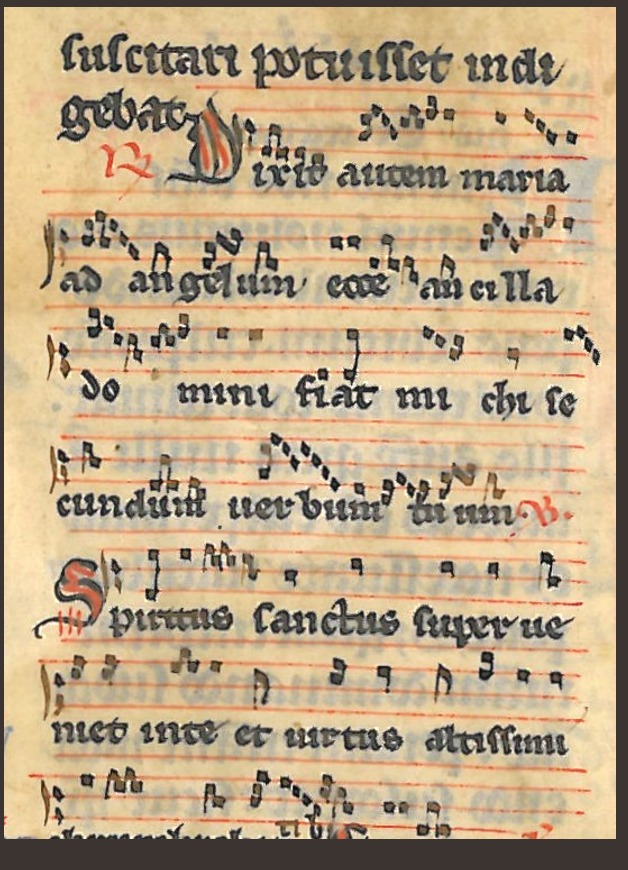 suscitari potuisset indi
gebat.
℟ Dixit autem maria
ad angelum ecce ancilla
do mini fiat mi chi se
cundum uerbum tuum. ℣.
Spiritus sanctus superue
niet inte et uirtus altissimi